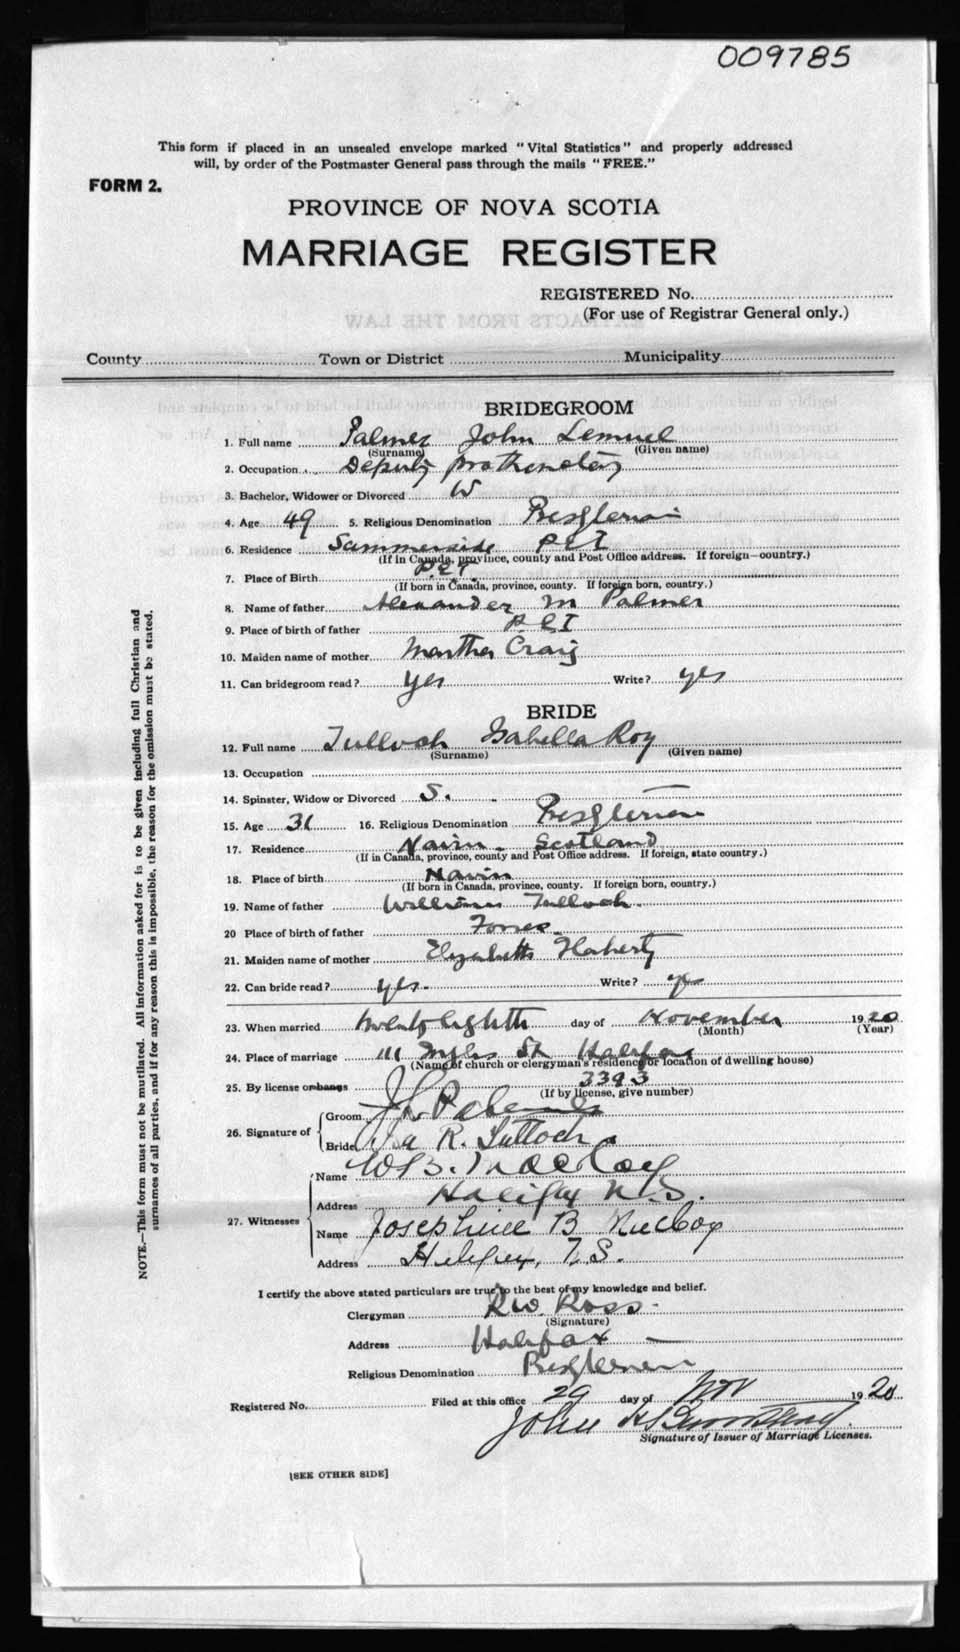 009785
This form if placed in an unsealed envelope marked "Vital Statistics" and properly addressed
will, by order of the Postmaster General pass through the mails "FREE."
FORM 2.
PROVINCE OF NOVA SCOTIA
MARRIAGE REGISTER
REGISTERED No.
(For use of Registrar General only.)
EXTRACTS FROM THE LAW
County Town or District Municipality
BRIDEGROOM
1. Full name Palmer John Lemuel
(Surname) (Given name)
2. Occupation Deputy Prothonotary
3. Bachelor, Widower or Divorced W
4. Age 49 5. Religious Denomination Presbyterian
6. Residence Summerside P E I
(If in Canada, province, county and Post Office address. If foreign—country.)
7. Place of Birth P.E.I
(If born in Canada, province, county. If foreign born, country.)
8. Name of father Alexander M Palmer
9. Place of birth of father P. E I
10. Maiden name of mother Martha Craig
11. Can bridegroom read? Yes Write? yes
BRIDE
12. Full name Tulloch Isabella Roy
(Surname) (Given name)
13. Occupation
14. Spinster, Widow or Divorced S.
15. Age 31 16. Religious Denomination Presbyterian
17. Residence Nairn - Scotland
(If in Canada, province, county and Post Office address. If foreign, state country.)
18. Place of birth Nairn
(If born in Canada, province, county. If foreign born, country.)
19. Name of father William Tulloch.
20 Place of birth of father Forres
21. Maiden name of mother Elizabeth Flaherty
22. Can bride read? yes. Write? yes
23. When married twenty eighth day of November 1920
(Month) (Year)
24. Place of marriage 111 Inglis St Halifax
(Name of church or clergyman's residence or location of dwelling house)
25. By license or banns 3393
(If by license, give number)
26. Signature of
Groom J L Palmer
Bride Isa R. Tulloch
27. Witnesses
Name W B. MacCoy
Address Halifax N.S.
Name Josephine B MacCoy
Address Halifax, N.S.
I certify the above stated particulars are true to the best of my knowledge and belief.
Clergyman R W. Ross
(Signature)
Address Halifax
Religious Denomination Presbyterian
Registered No. Filed at this office 29 day of Nov 1920
John
Signature of Issuer of Marriage Licenses.
[SEE OTHER SIDE]
NOTE.—This form must not be mutilated. All information asked for is to be given including full Christian and
surnames of all parties, and if for any reason this is impossible, the reason for the omission must be stated.